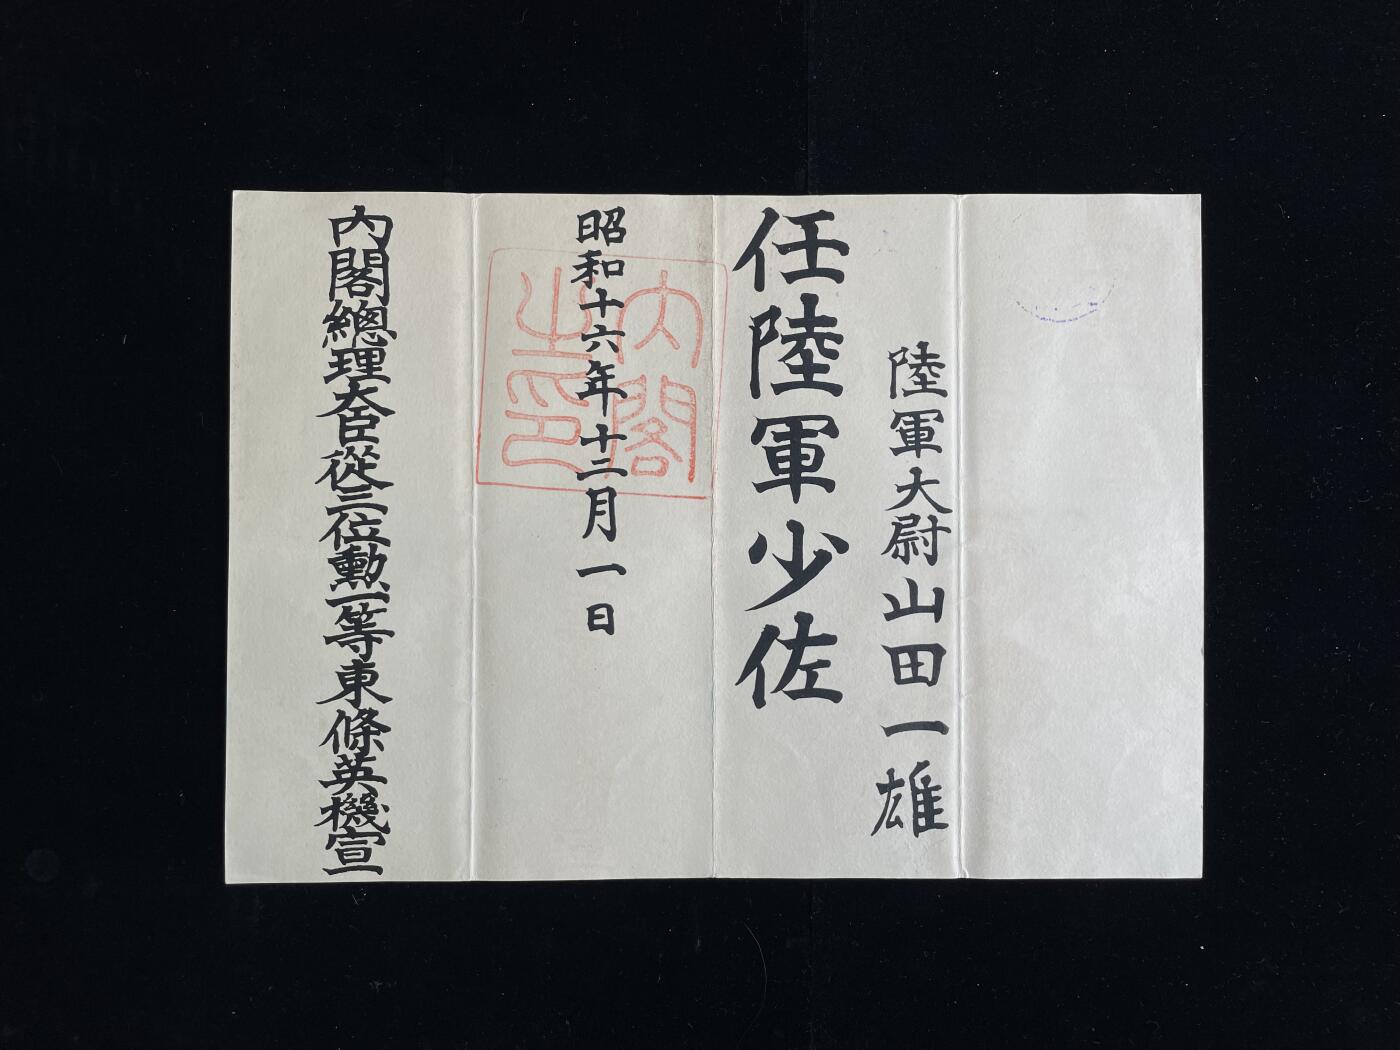 陸軍大尉山田一雄
任陸軍少佐
昭和十六年十二月一日
內閣之印
內閣總理大臣從三位勳一等東條英機宣